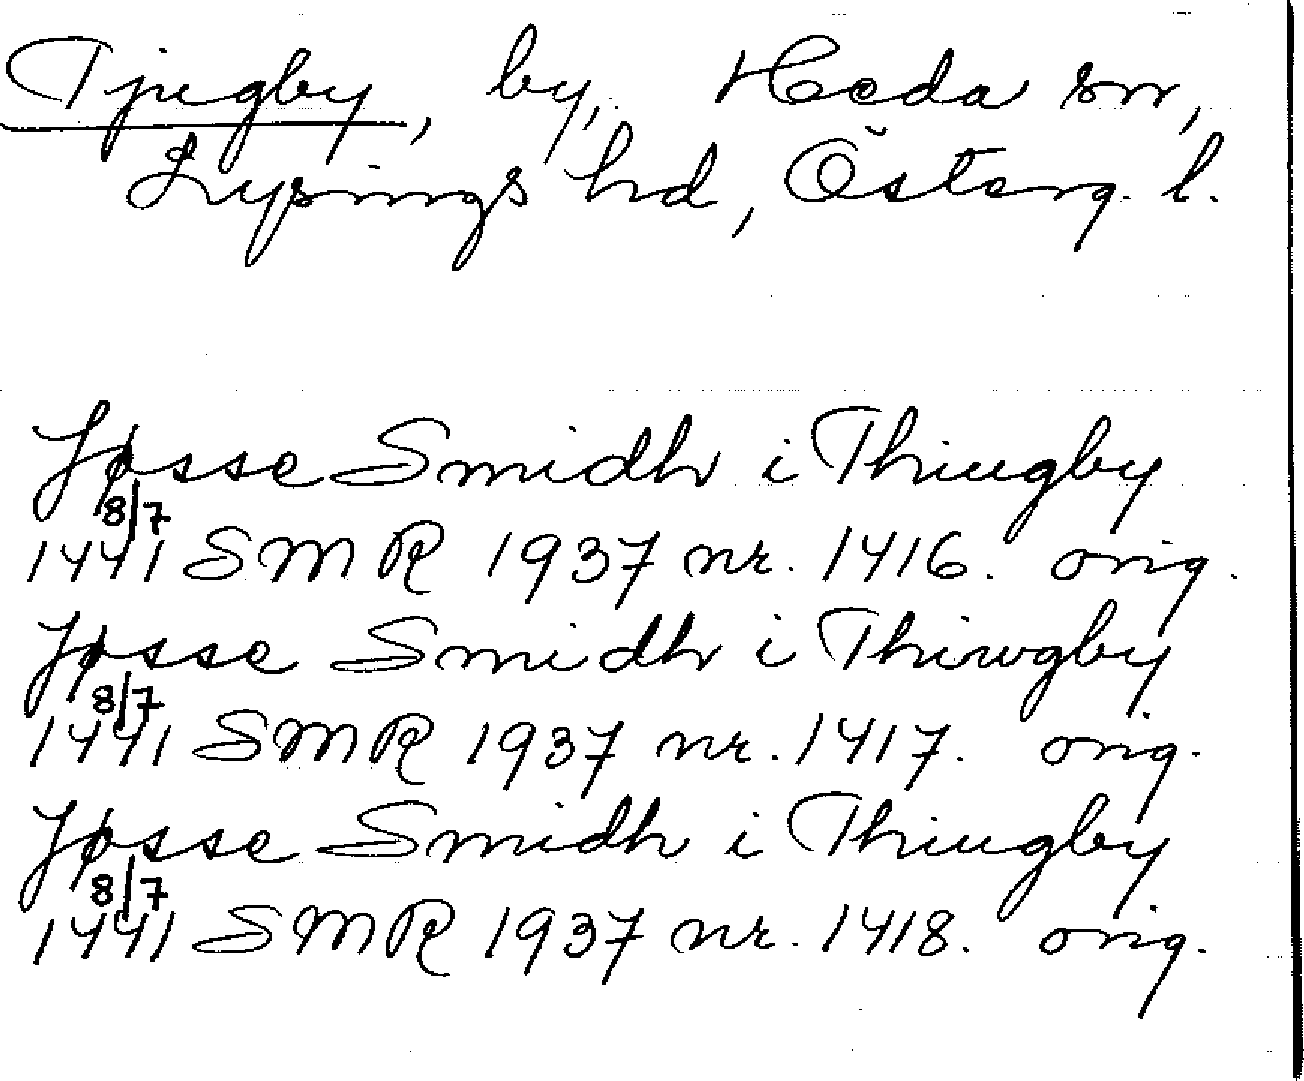 Tjugby, by, Heda sn,
Lysings hd, Österg. l.
Jøsse Smidh i Thiugby
8/7
1441 SMR 1937 nr. 1416. orig.
Jøsse Smidh i Thiwgby
8/7
1441 SMR 1937 nr. 1417. orig.
Jøsse Smidh i Thiugby
8/7
1441 SMR 1937 nr. 1418. orig.